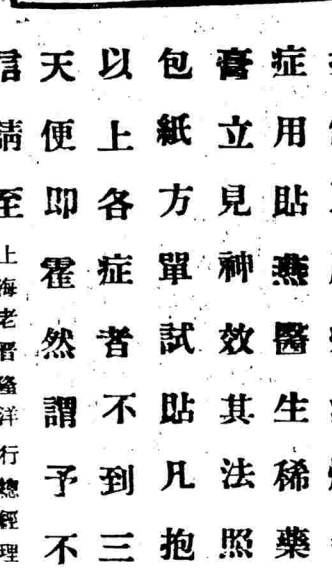 症用貼燕醫生稀藥
膏立見神效其法照
包紙方單試貼凡抱
以上各症者不到三
天便即霍然謂予不
信請至上海老晋隆洋行總經理